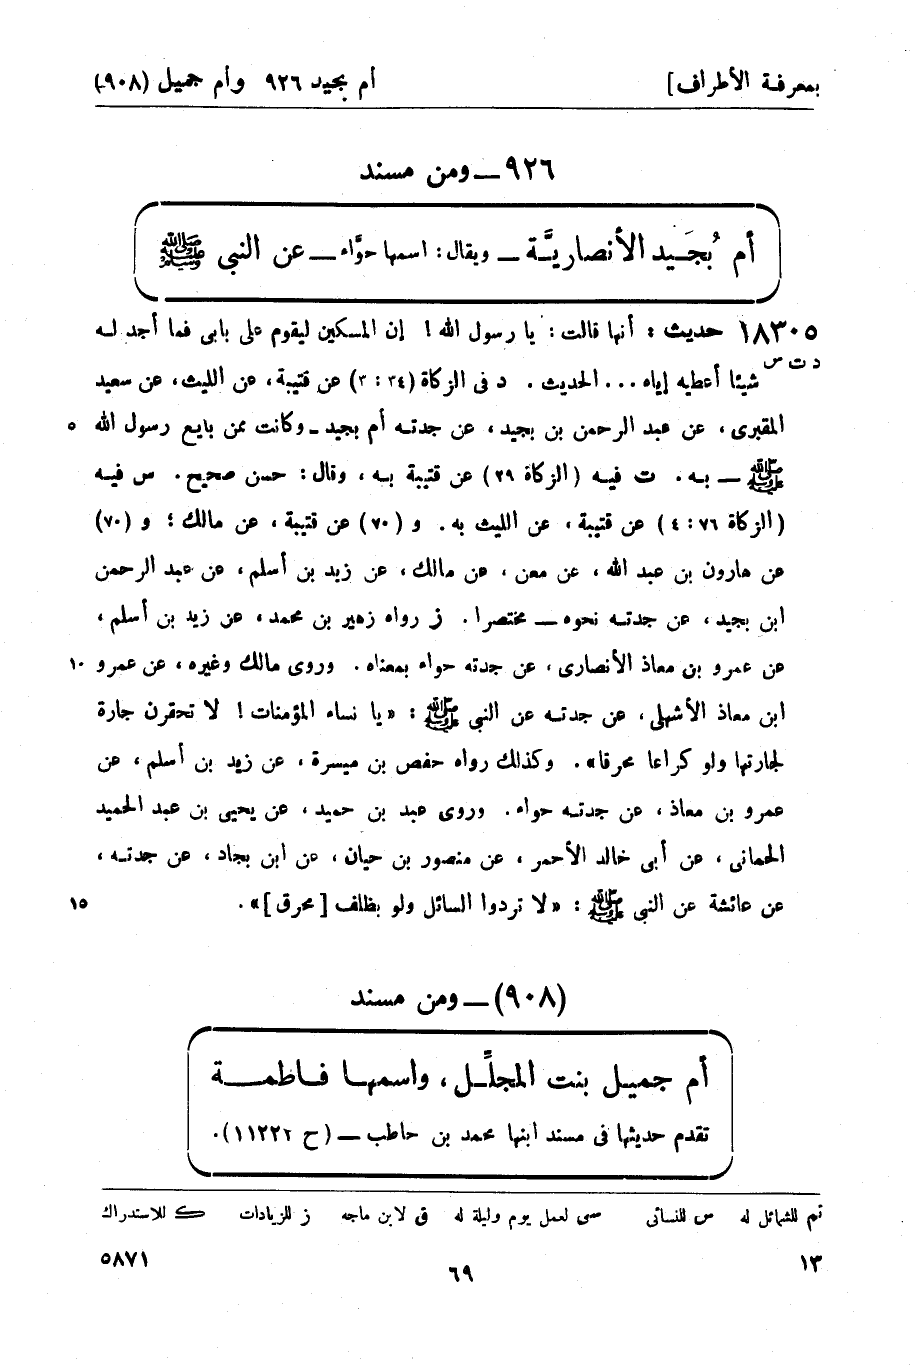 بمعرفة الأطراف] أم بجيد ٩٢٦ وأم جميل (٩٠٨)
٩٢٦ — ومن مسند
أم بُجَيد الأنصاريَّة — ويقال: اسمها حوَّاء — عن النبي ﷺ
١٨٣٠٥ حديث: أنها قالت: يا رسول الله! إن المسكين ليقوم على بابى فما أجد له
د ت س شيئا أعطيه إياه ... الحديث. د فى الزكاة (٣٤ : ٣) عن قتيبة، عن الليث، عن سعيد
المقبرى، عن عبد الرحمن بن بجيد، عن جدته أم بجيد - وكانت ممن بايع رسول الله ٥
ﷺ — به. ت فيه (الزكاة ٢٩) عن قتيبة به، وقال: حسن صحيح. س فيه
(الزكاة ٧٦ : ٤) عن قتيبة، عن الليث به. و (٧٠) عن قتيبة، عن مالك؛ و (٧٠)
عن هارون بن عبد الله، عن معن، عن مالك، عن زيد بن أسلم، عن عبد الرحمن
ابن بجيد، عن جدته نحوه — مختصرا. ز رواه زهير بن محمد، عن زيد بن أسلم،
عن عمرو بن معاذ الأنصارى، عن جدته حواء بمعناه. وروى مالك وغيره، عن عمرو ١٠
ابن معاذ الأشهلى، عن جدته عن النبي ﷺ: «يا نساء المؤمنات! لا تحقرن جارة
لجارتها ولو كراعا محرقا». وكذلك رواه حفص بن ميسرة، عن زيد بن أسلم، عن
عمرو بن معاذ، عن جدته حواء. وروى عبد بن حميد، عن يحيى بن عبد الحميد
الحمانى، عن أبى خالد الأحمر، عن منصور بن حيان، عن ابن بجاد، عن جدته،
عن عائشة عن النبي ﷺ: «لا تردوا السائل ولو بظلف [محرق]». ١٥
(٩٠٨) — ومن مسند
أم جميل بنت المجلِّل، واسمها فاطمة
تقدم حديثها فى مسند ابنها محمد بن حاطب — (ح ١١٢٢٢).
تم للشمائل له س للنسائى سى لعمل يوم وليلة له ق لابن ماجه ز للزيادات ك للاستدراك
١٣ ٦٩ ٥٨٧١